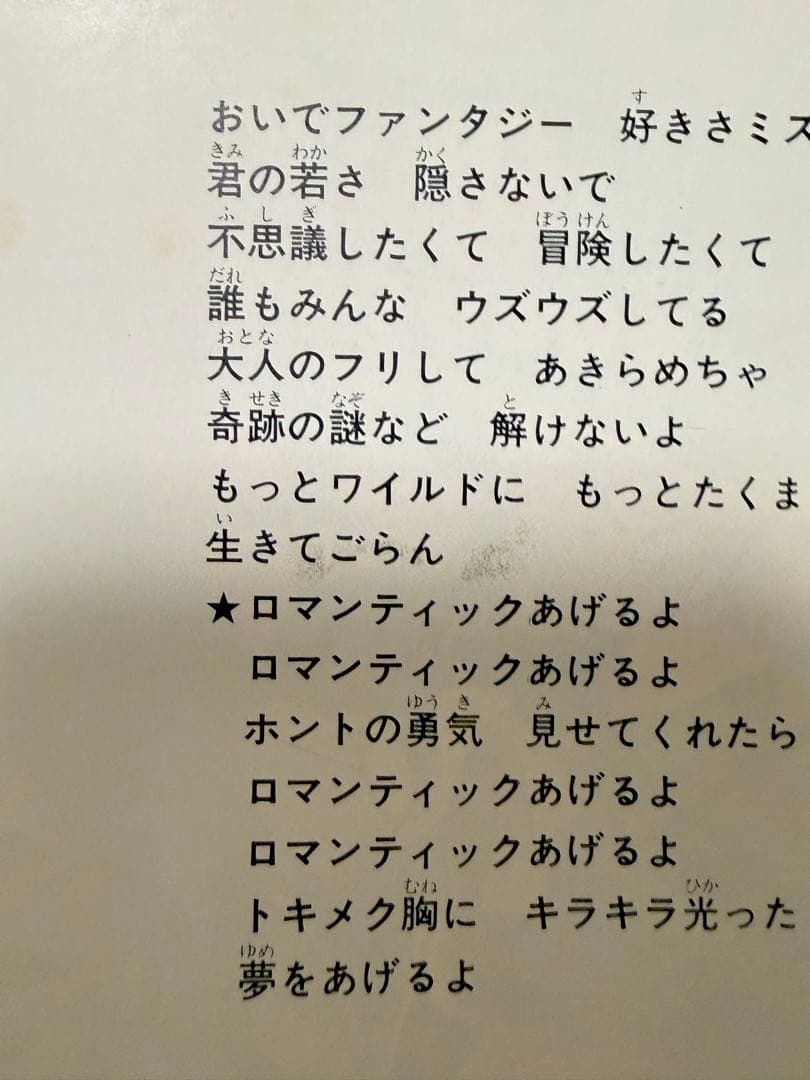 おいでファンタジー　好きさミス
君の若さ　隠さないで
不思議したくて　冒険したくて
誰もみんな　ウズウズしてる
大人のフリして　あきらめちゃ
奇跡の謎など　解けないよ
もっとワイルドに　もっとたくま
生きてごらん
★ロマンティックあげるよ
ロマンティックあげるよ
ホントの勇気　見せてくれたら
ロマンティックあげるよ
ロマンティックあげるよ
トキメク胸に　キラキラ光った
夢をあげるよ